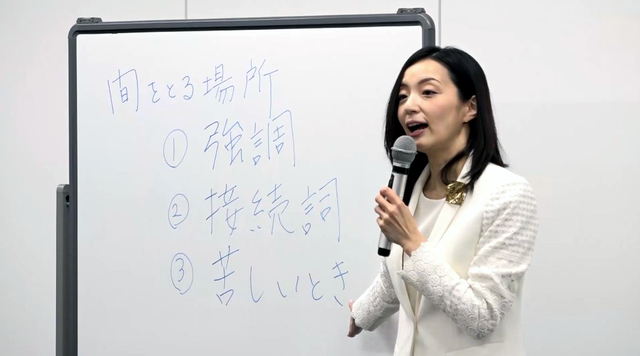 間をとる場所
① 強調
② 接続詞
③ 苦しいとき